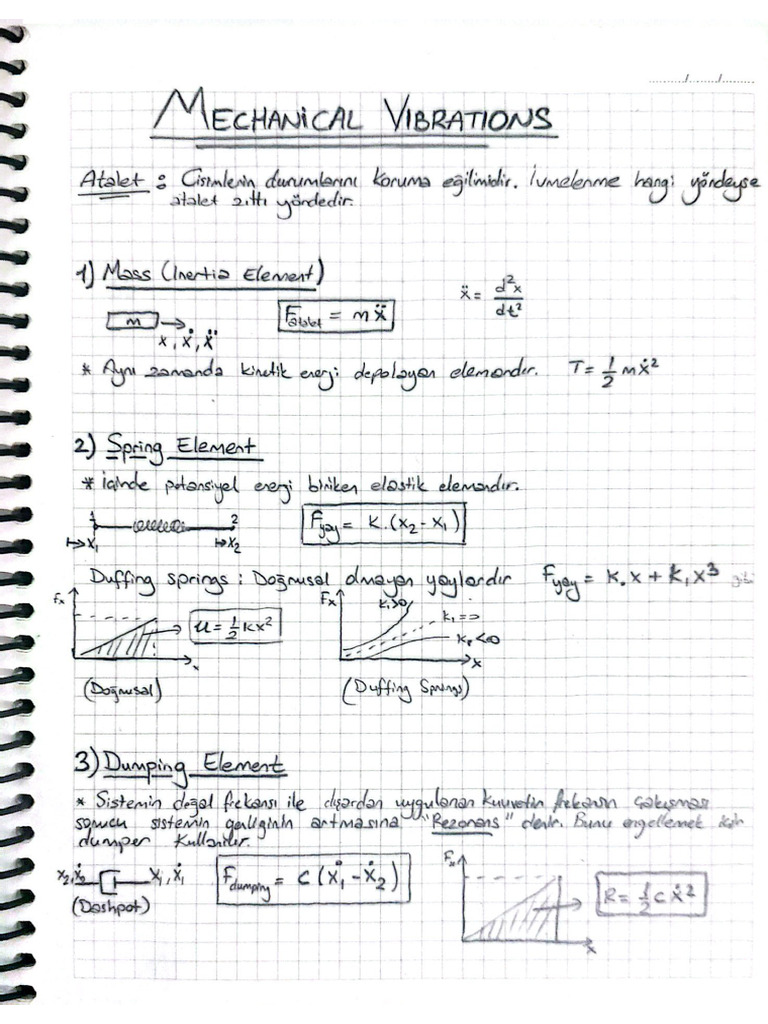 ...../...../.....
MECHANICAL VIBRATIONS
Atalet : Cisimlerin durumlarını koruma eğilimidir. İvmelenme hangi yöndeyse
atalet zıttı yöndedir.
1) Mass (Inertia Element)
m
x, ẋ, ẍ
F_atalet = mẍ
ẍ = d²x/dt²
* Aynı zamanda kinetik enerji depolayan elemandır. T = 1/2 mẋ²
2) Spring Element
* İçinde potansiyel enerji biriken elastik elemandır.
1 2
x₁ x₂
F_yay = k.(x₂ - x₁)
Duffing springs : Doğrusal olmayan yaylardır F_yay = k.x + k₁x³ gibi
Fx
x
u = 1/2 kx²
(Doğrusal)
Fx
k₁>0
k₁=0
k₁<0
x
(Duffing Springs)
3) Dumping Element
* Sistemin doğal frekansı ile dışardan uygulanan kuvvetin frekansın çakışması
sonucu sistemin genliğinin artmasına "Rezonans" denir. Bunu engellemek için
dumper kullanılır.
x₂, ẋ₂ x₁, ẋ₁
(Dashpot)
F_dumping = c (ẋ₁ - ẋ₂)
ẋ
R = 1/2 cẋ²